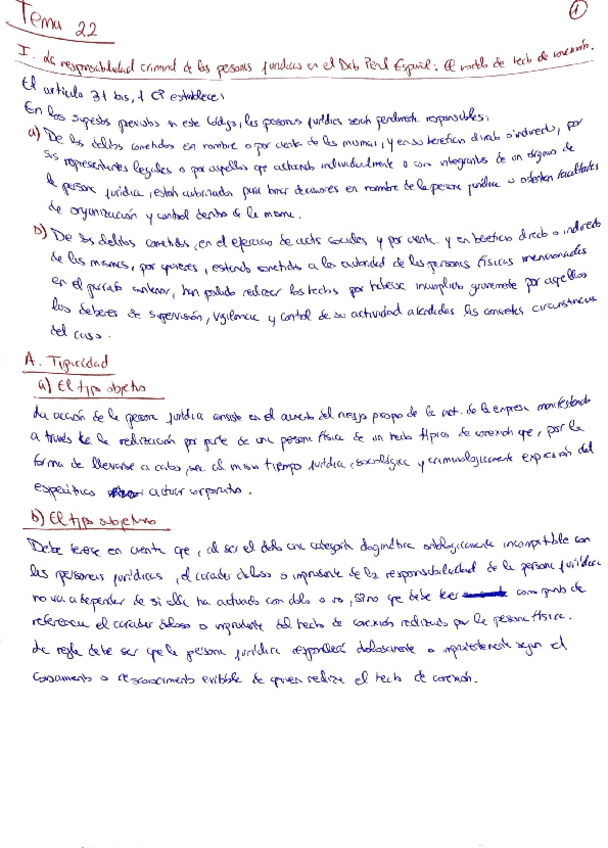 Tema 22
1
I. La responsabilidad criminal de las personas jurídicas en el Dcho Penal Español: El modelo de hecho de conexión.
El artículo 31 bis, 1 CP establece:
En los supuestos previstos en este Código, las personas jurídicas serán penalmente responsables:
a) De los delitos cometidos en nombre o por cuenta de las mismas, y en su beneficio directo o indirecto, por
sus representantes legales o por aquellos que actuando individualmente o como integrantes de un órgano de
la persona jurídica, están autorizados para tomar decisiones en nombre de la persona jurídica u ostentan facultades
de organización y control dentro de la misma.
b) De los delitos cometidos, en el ejercicio de acts sociales y por cuenta y en beneficio directo o indirecto
de las mismas, por quienes, estando sometidos a la autoridad de las personas físicas mencionadas
en el párrafo anterior, han podido realizar los hechos por haberse incumplido gravemente por aquellos
los deberes de supervisión, vigilancia y control de su actividad atendidas las concretas circunstancias
del caso.
A. Tipicidad
a) El tipo objetivo
La acción de la persona jurídica consiste en el aumento del riesgo propio de la act. de la empresa manifestado
a través de la realización por parte de una persona física de un hecho típico de conexión que, por la
forma de llevarse a cabo, sea al mismo tiempo jurídica, sociológica y criminologicamente expresión del
específico actuar corporativo.
b) El tipo subjetivo
Debe tenerse en cuenta que, al ser el dolo una categoría dogmática ontológicamente incompatible con
las personas jurídicas, el carácter doloso o imprudente de la responsabilidad de la persona jurídica
no va a depender de si ella ha actuado con dolo o no, sino que debe tener como punto de
referencia el carácter doloso o imprudente del hecho de conexión realizado por la persona física.
La regla debe ser que la persona jurídica responderá dolosamente o imprudentemente según el
conocimiento o desconocimiento evitable de quien realiza el hecho de conexión.